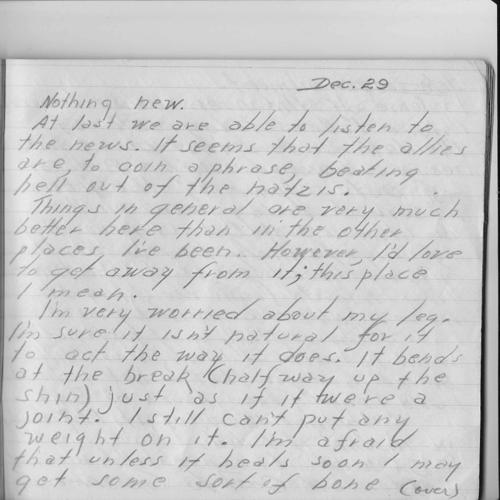 Dec. 29
Nothing new.
At last we are able to listen to
the news. It seems that the allies
are, to coin a phrase, beating
hell out of the natzis.
Things in general are very much
better here than in the other
places I've been. However, I'd love
to get away from it; this place
I mean.
I'm very worried about my leg.
I'm sure it isn't natural for it
to act the way it does. It bends
at the break (half way up the
shin) just as if it twere a
joint. I still can't put any
weight on it. I'm afraid
that unless it heals soon I may
get some sort of bone (over)